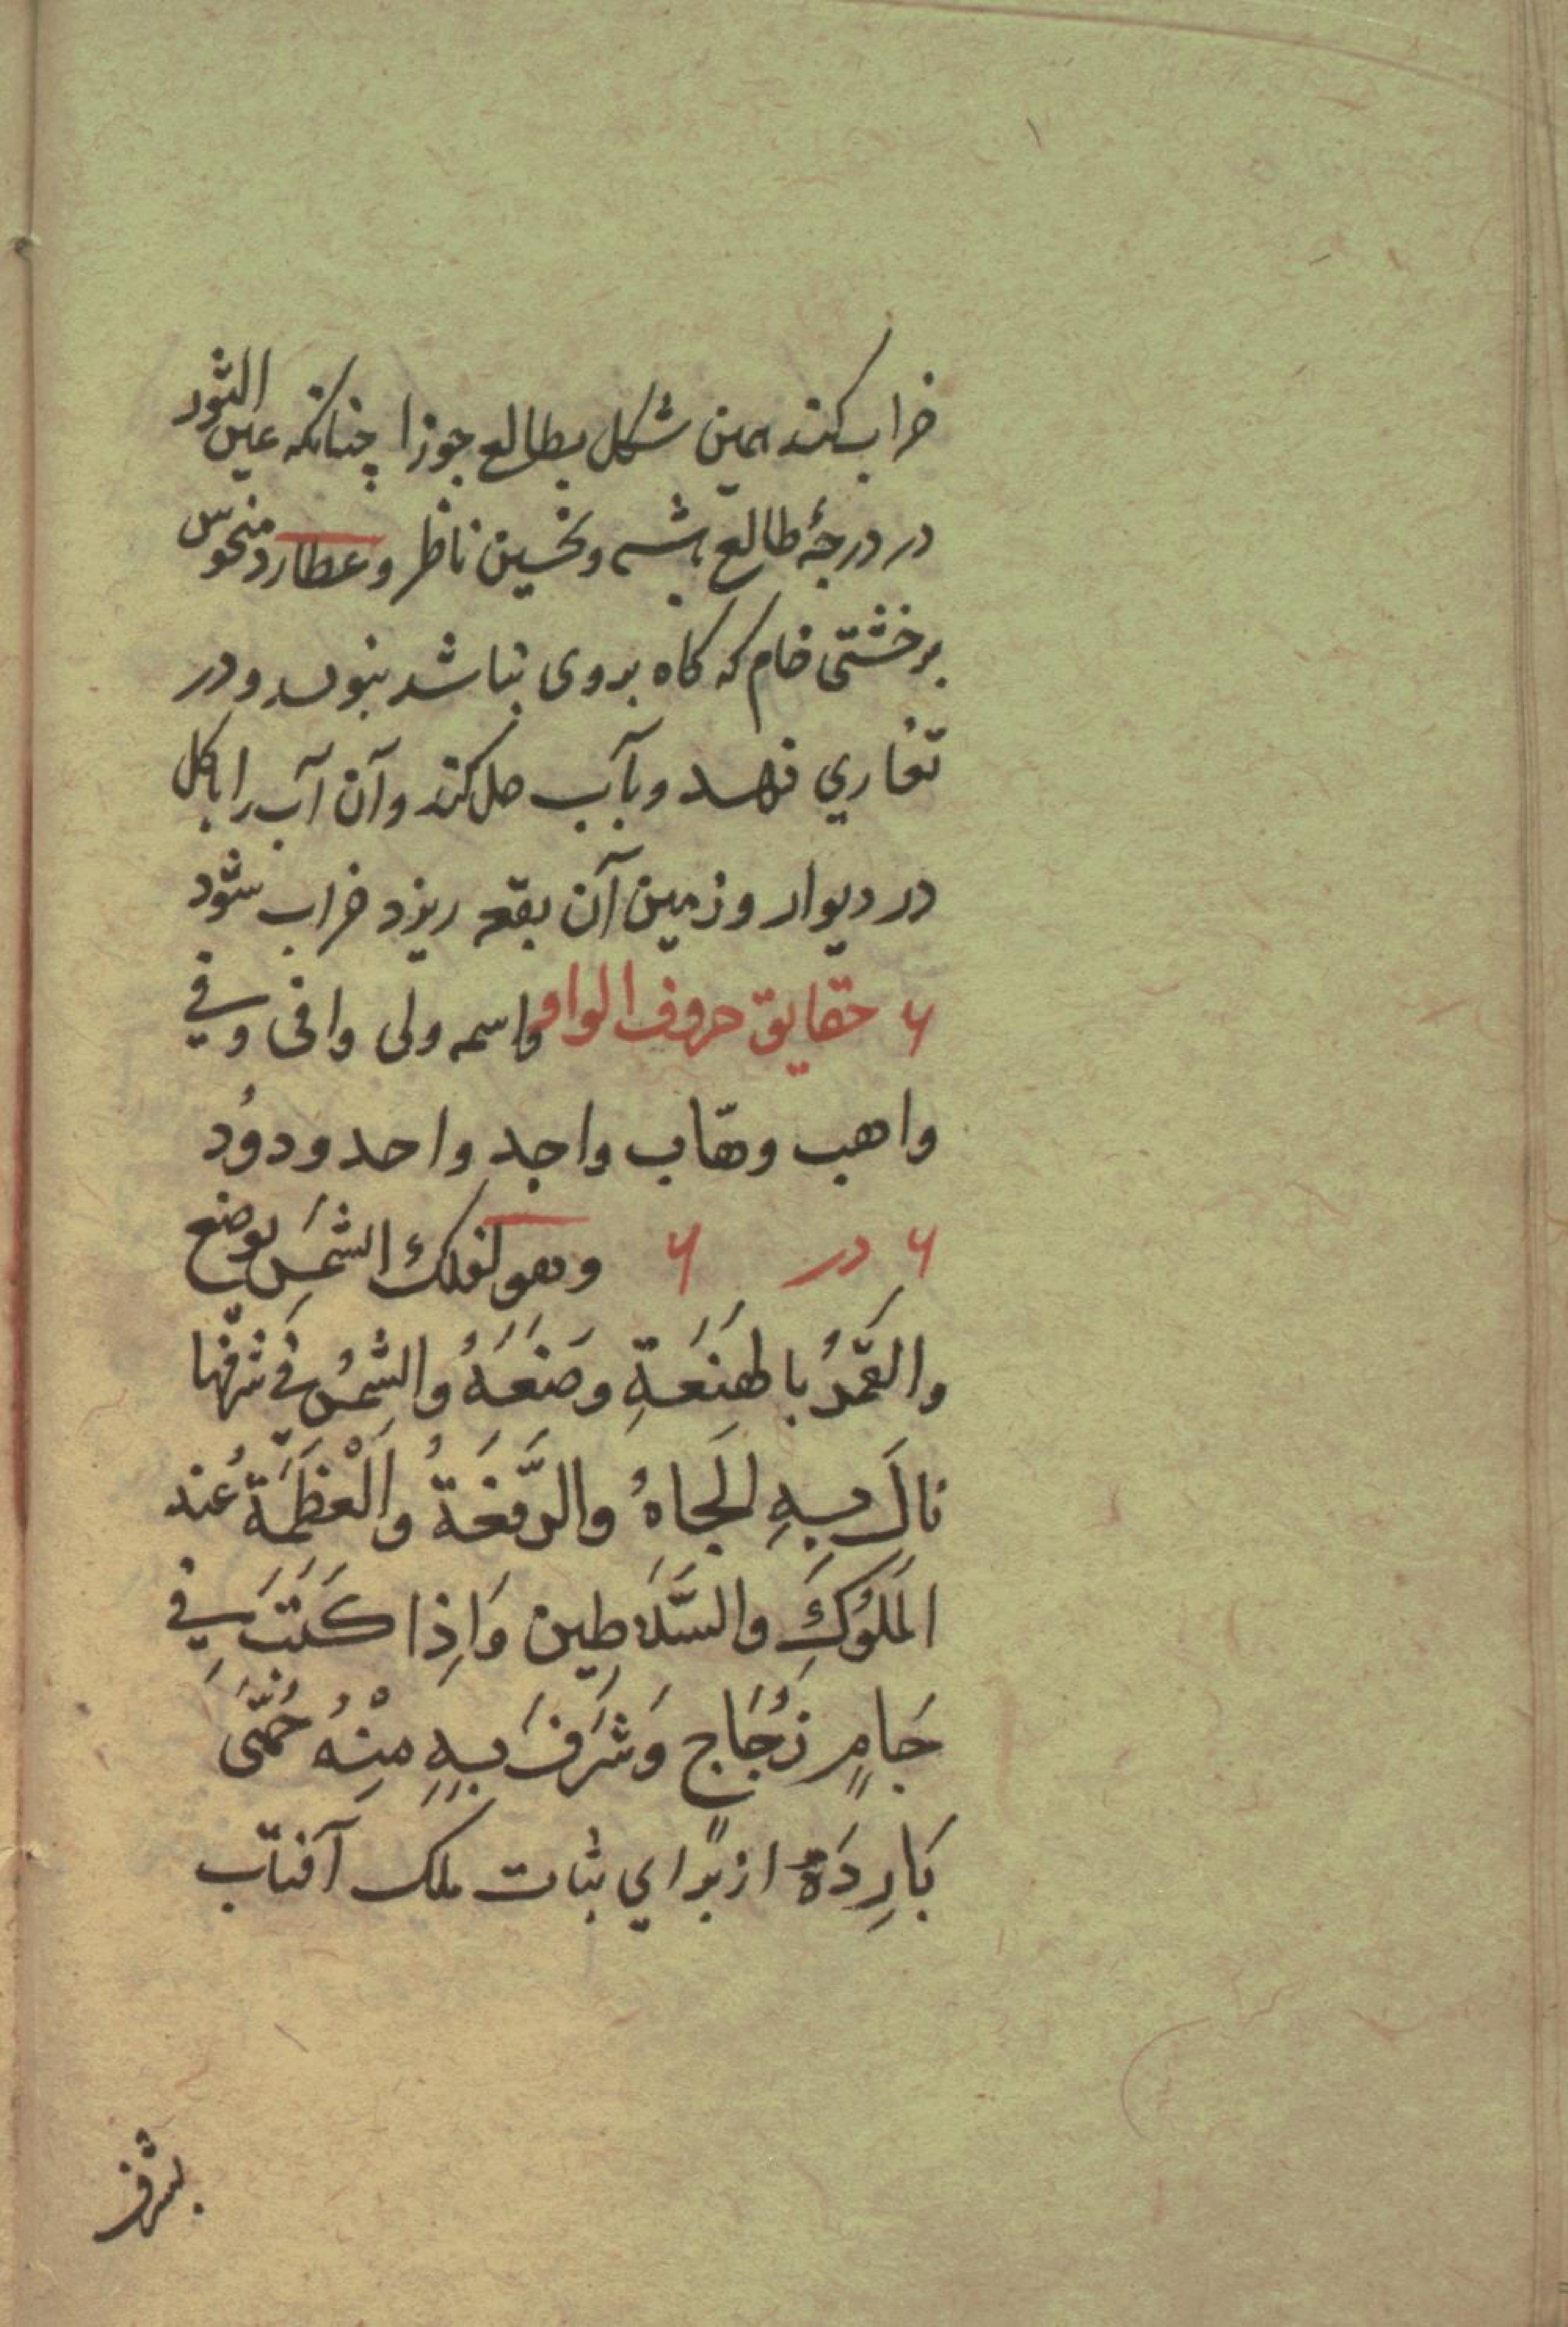 خراب کنند همین شکل بطالع جوزا چنانکه عین الثور
در درجهٔ طالع باشد ونحسین ناظر وعطارد منحوس
برخشتی خام که کاه بروی نباشد بنوسد ودر
تغاری نهد وبآب حل کند وآن آب را باکل
در دیوار وزمین آن بقعه ریزد خراب شود
۶ حقایق حروف الواو واسمه ولی وافی وفي
واهب وهّاب واجد واحد ودوُد
۶ در ۶ وهو لفلك الشمَس یوضع
والقَمَرُ بالهَنَعَةِ وضَعَهُ والشمسُ في شرفها
نالَ بهِ الجاهُ والرَّفعَةُ والْعَظَمَة عُند
المَلُوكِ والسَّلَاطِین وَاِذا كَتَبَ فِي
جَامٍ زُجَاجٍ وَشَرَفَ بِهِ مِنْهُ حُمَّى
بَارِدَةً ازبرای ثبات ملک آفتاب
بشرف